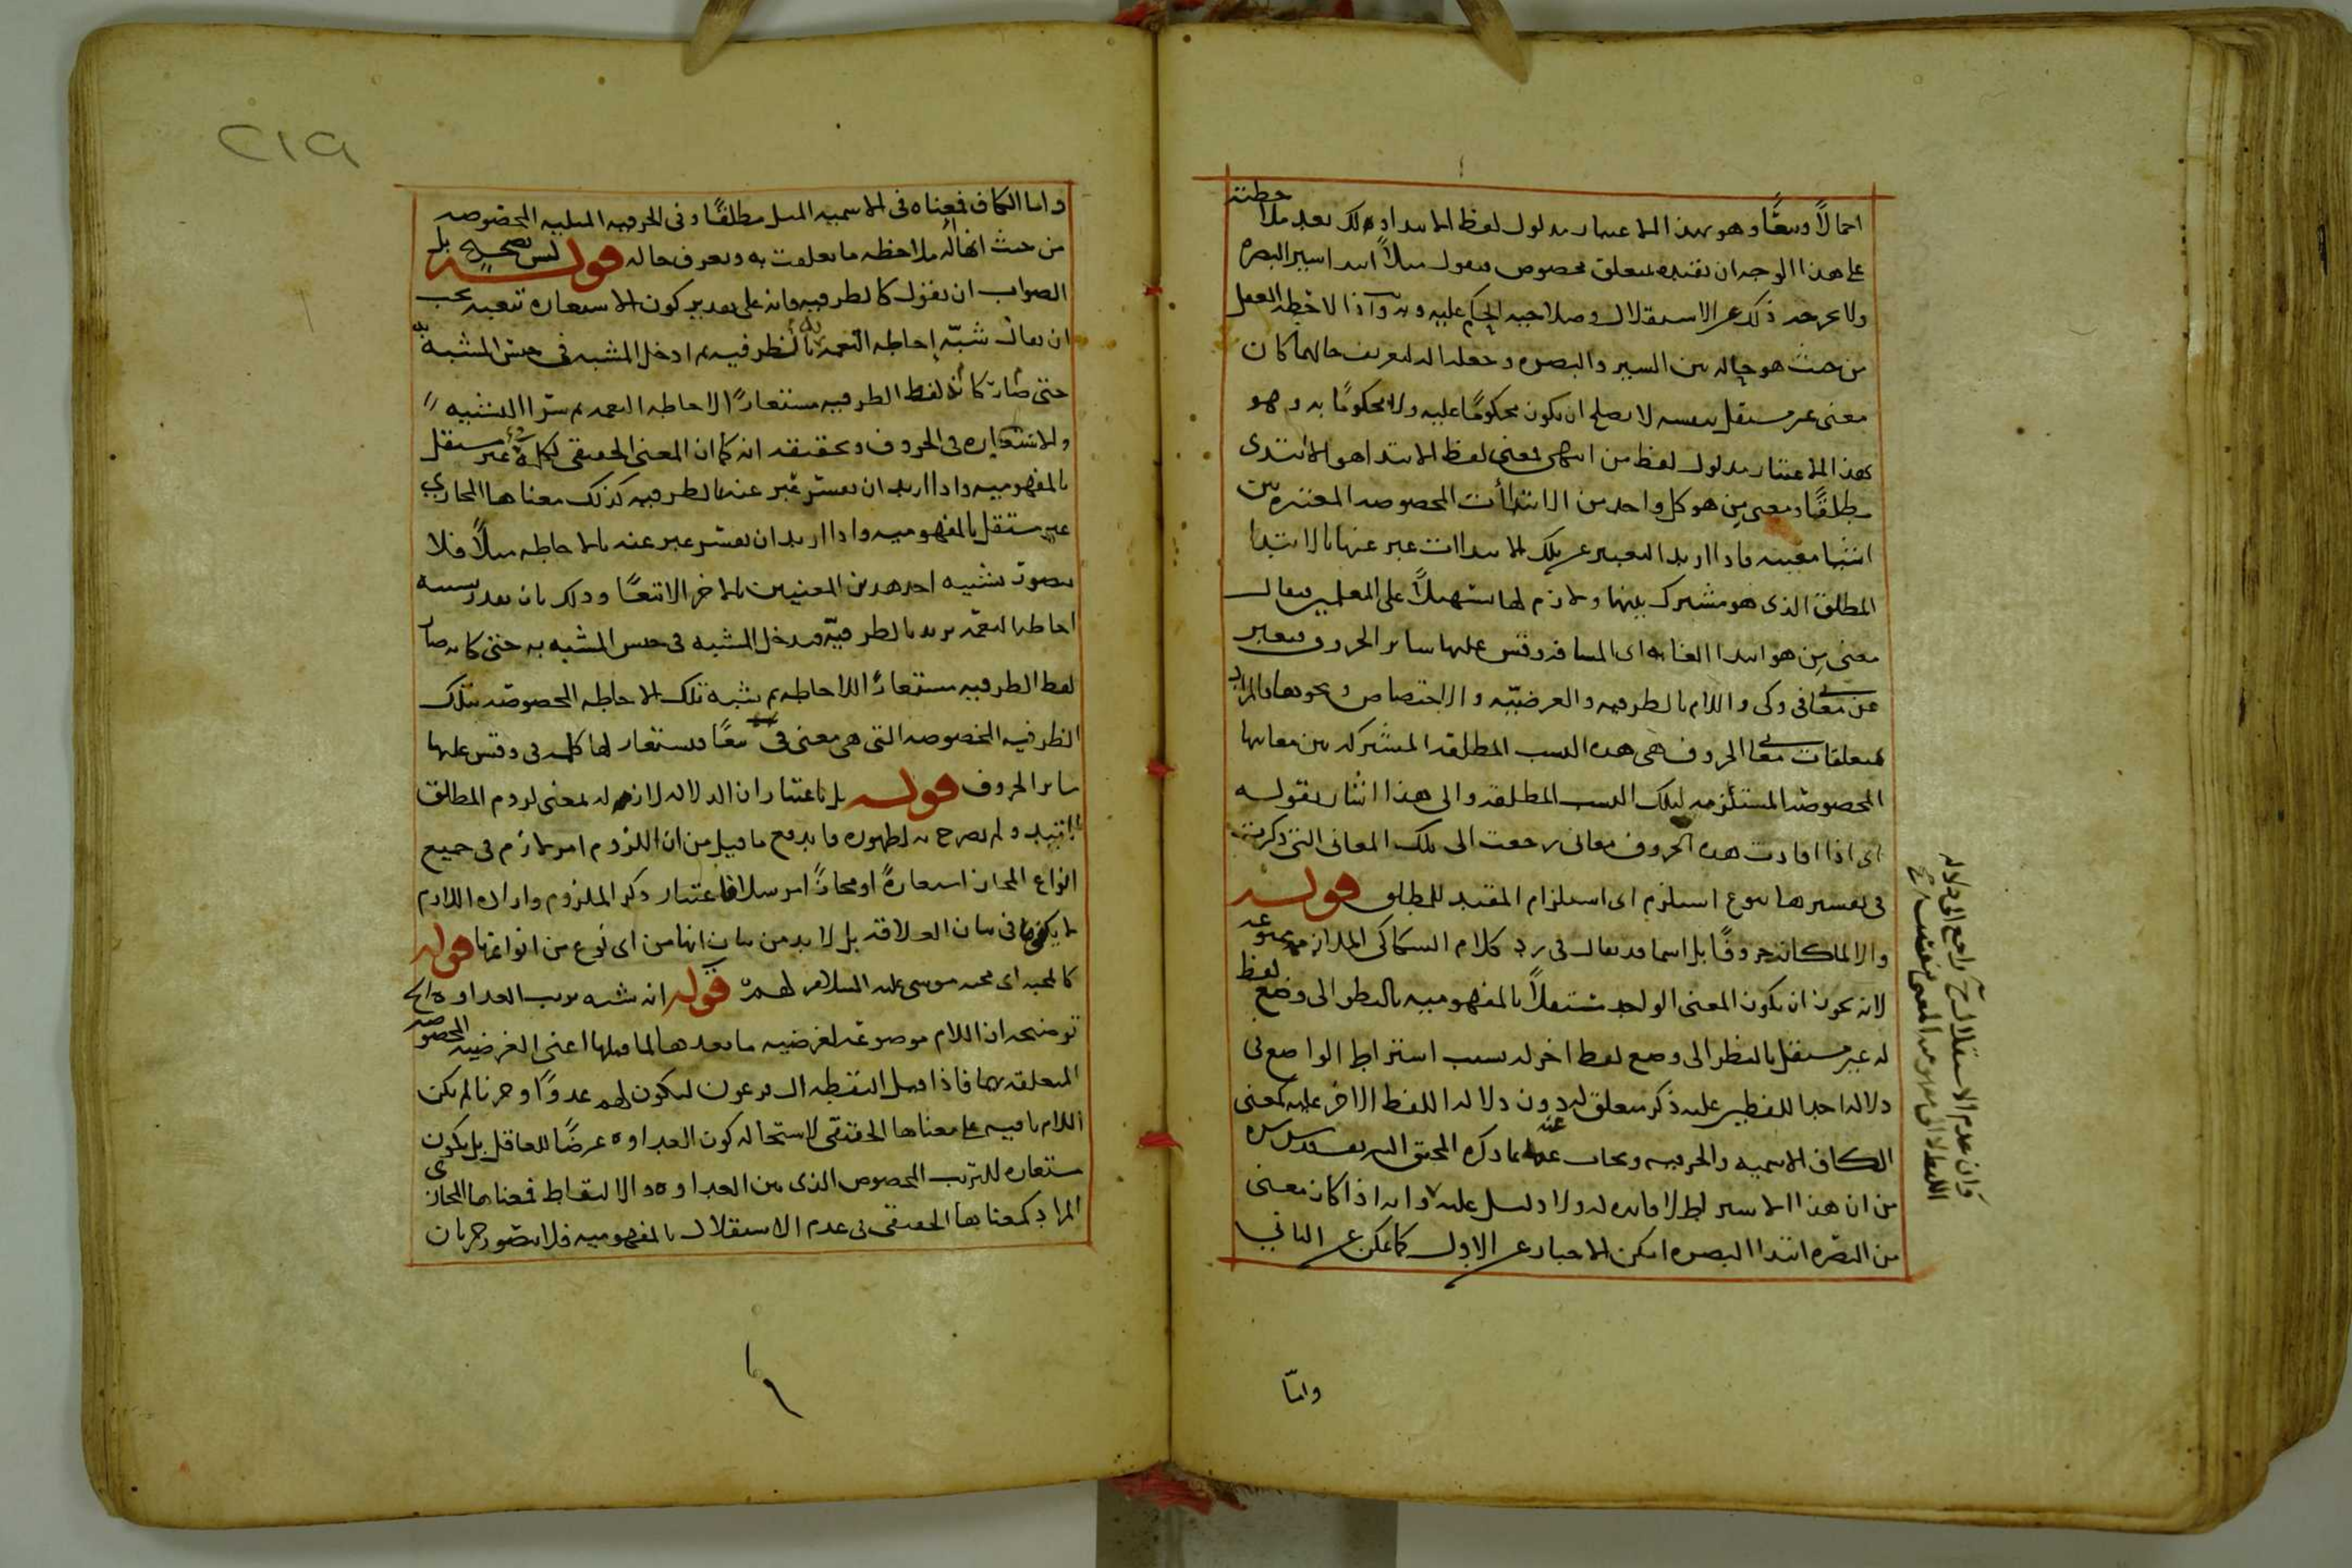 اجمالاً وتبعًا وهو بهذا الاعتبار مدلول لفظ الابتداء ولك بعد ملاحظته
على هذا الوجه ان تقيده بمتعلق مخصوص فيقول مثلاً ابتداء سير البصره
ولا يخرجه ذلك عن الاستقلال وصلاحيه الحكم عليه وبه واذا لاحظه العقل
من حيث هو حاله بين السير والبصره وجعله اله لتعريف حالهما كان
معنى غير مستقل بنفسه لا يصلح ان يكون محكومًا عليه ولا محكومًا به وهو
بهذا الاعتبار مدلول لفظ من انتهى فمعنى لفظ الابتدا هو الابتدى
مطلقًا ومعنى من هو كل واحد من الابتدأت المخصوصه المعتبره بين
اشيا معينه فاذا اريد التعبير عن تلك الابتداات عبر عنها بالابتدا
المطلق الذى هو مشترك بينها ولازم لها تسهيلاً على المعلمين فيقال
معنى من هو ابتدا الغايه اى المسافه وقس عليها سائر الحروف فيعبر
عن معانى فى وكى واللام بالظرفيه والغرضيّه والاختصاص ونحوها فالمراد
بمتعلقات معانى الحروف هى هذه النسب المطلقه المشتركه بين معانيها
المخصوصه المستلزمه لتلك النسب المطلقه والى هذا اشار بقوله
اى اذا افادت هذه الحروف معانى رجعت الى تلك المعانى التى ذكرت
فى تفسيرها بنوع استلزم اى استلزام المقيد للمطلق قوله
والا لما كانت حروفًا بل اسما قد يقال فى رد كلام السكاكى الملازمه ممنوعه
لانه يجوز ان يكون المعنى الواحد مستقلاً بالمفهوميه بالنظر الى وضع لفظ
له غير مستقل بالنظر الى وضع لفظ اخر له بسبب اشتراط الواضع فى
دلاله احد اللفظين عليه ذكر متعلق له دون دلاله اللفظ الاخر عليه كمعنى
الكاف الاسميه والحرفيه ويجاب عنه بما ذكره المحقق الشريف قدس سره
من ان هذا الاشتراط لا فايده له ولا دليل عليه وانه اذا كان معنى
من البصره ابتدا البصره امكن الاخبار عن الاول كما يمكن عن الثانى
وان عدم الاستقلال راجع الى دلاله
اللفظ لا الى مفهوم المعنى نفسه
وامّا
٢١٩
واما الكاف فمعناه فى الاسميه المثل مطلقًا وفى الحرفيه المثليه المخصوصه
من حيث انها اله ملاحظه ما تعلقت به وتعرف حاله قوله ليس بصحيح بل
الصواب ان يقول كالظرفيه فانه على تقدير كون الاستعاره تبعيه يجب
ان يقال شبّه إحاطه النعمه بالظرفيه ثم ادخل المشبه فى جنس المشبه به
حتى صارت كأنه لفظ الظرفيه مستعارًا لاحاطه النعمه ثم سرا التشبيه
والاستعاره فى الحروف وتحقيقه انه كما ان المعنى الحقيقى لكلمة فى غير مستقل
بالمفهوميه واذا اريد ان يفسر عبر عنه بالظرفيه كذلك معناها المجازى
غير مستقل بالمفهوميه واذا اريد ان يفسر عبر عنه بالاحاطه مثلاً فلا
يتصور تشبيه احد هذين المعنيين بالاخر الا تبعًا وذلك بان يعد تشبيه
احاطه النعمه بريد بالظرفيّه فيدخل المشبه فى جنس المشبه به حتى كانه صار
لفظ الظرفيه مستعارًا للاحاطه ثم يشبه تلك الاحاطه المخصوصه بتلك
الظرفيه المخصوصه التى هى معنى فى تبعًا فيستعار لها كلمه فى وقس عليها
سائر الحروف قوله بل باعتبار ان الدلاله لازم له بمعنى لزوم المطلق
للمقيد ولم يصرح به لظهوره فاندفع ما قيل من ان اللزوم امر لازم فى جميع
انواع المجاز استعارةً او مجازًا مرسلا فاعتبار ذكر الملزوم واراده اللازم
لا يكفى فى بيان العلاقه بل لا بد من بيان انها من اى نوع من انواعها قوله
كالمحبه اى محبه موسى عليه السلام لهم قوله انه شبه ترتب العداوه الخ
توضيحه ان اللام موضوعه لغرضيه ما بعدها لما قبلها اعنى الغرضيه المخصوصه
المتعلقه بهما فاذا قيل التقطه ال فرعون ليكون لهم عدوًا وحزنا لم يكن
اللام باقيه على معناها الحقيقى لاستحاله كون العداوه غرضًا للعاقل بل يكون
مستعاره للترتب المخصوص الذى بين العداوه والالتقاط فمعناها المجازى
المراد كمعناها الحقيقى فى عدم الاستقلال بالمفهوميه فلا يتصور جريان